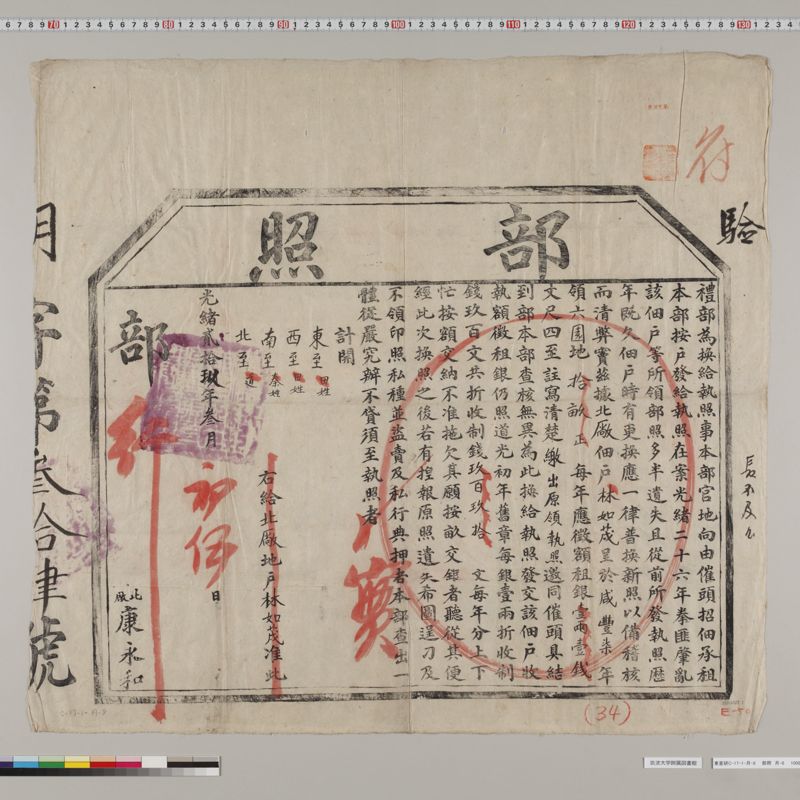 部照
禮部為換給執照事本部官地向由催頭招佃承租
本部按戶發給執照在案光緒二十六年拳匪肇亂
該佃戶等所領部照多半遺失且從前所發執照歷
年既久佃戶時有更換應一律普換新照以備稽核
而清弊竇茲據北廠佃戶林如茂呈於咸豐柒年
領六圈地拾畝正每年應徵額租銀壹兩壹錢
文尺四至註寫清楚繳出原領執照邀同催頭具結
到部本部查核無異為此換給執照發交該佃戶收
執額徵租銀仍照道光初年舊章每銀壹兩折收制
錢玖百文共折收制錢玖百玖拾文每年分上下
忙按額交納不准拖欠其願按畝交銀者聽從其便
經此次換照之後若有捏報原照遺失希圖逞刁及
不領印照私種並盜賣及私行典押者本部查出一
體從嚴究辦不貸須至執照者
計開
東至
西至
南至秦姓
北至道
右給北廠地戶林如茂准此
光緒貳拾玖年叁月初
日
部
北廠康永和
驗
符
字第叁拾肆號
(34)
E-50
筑波大学附属図書館